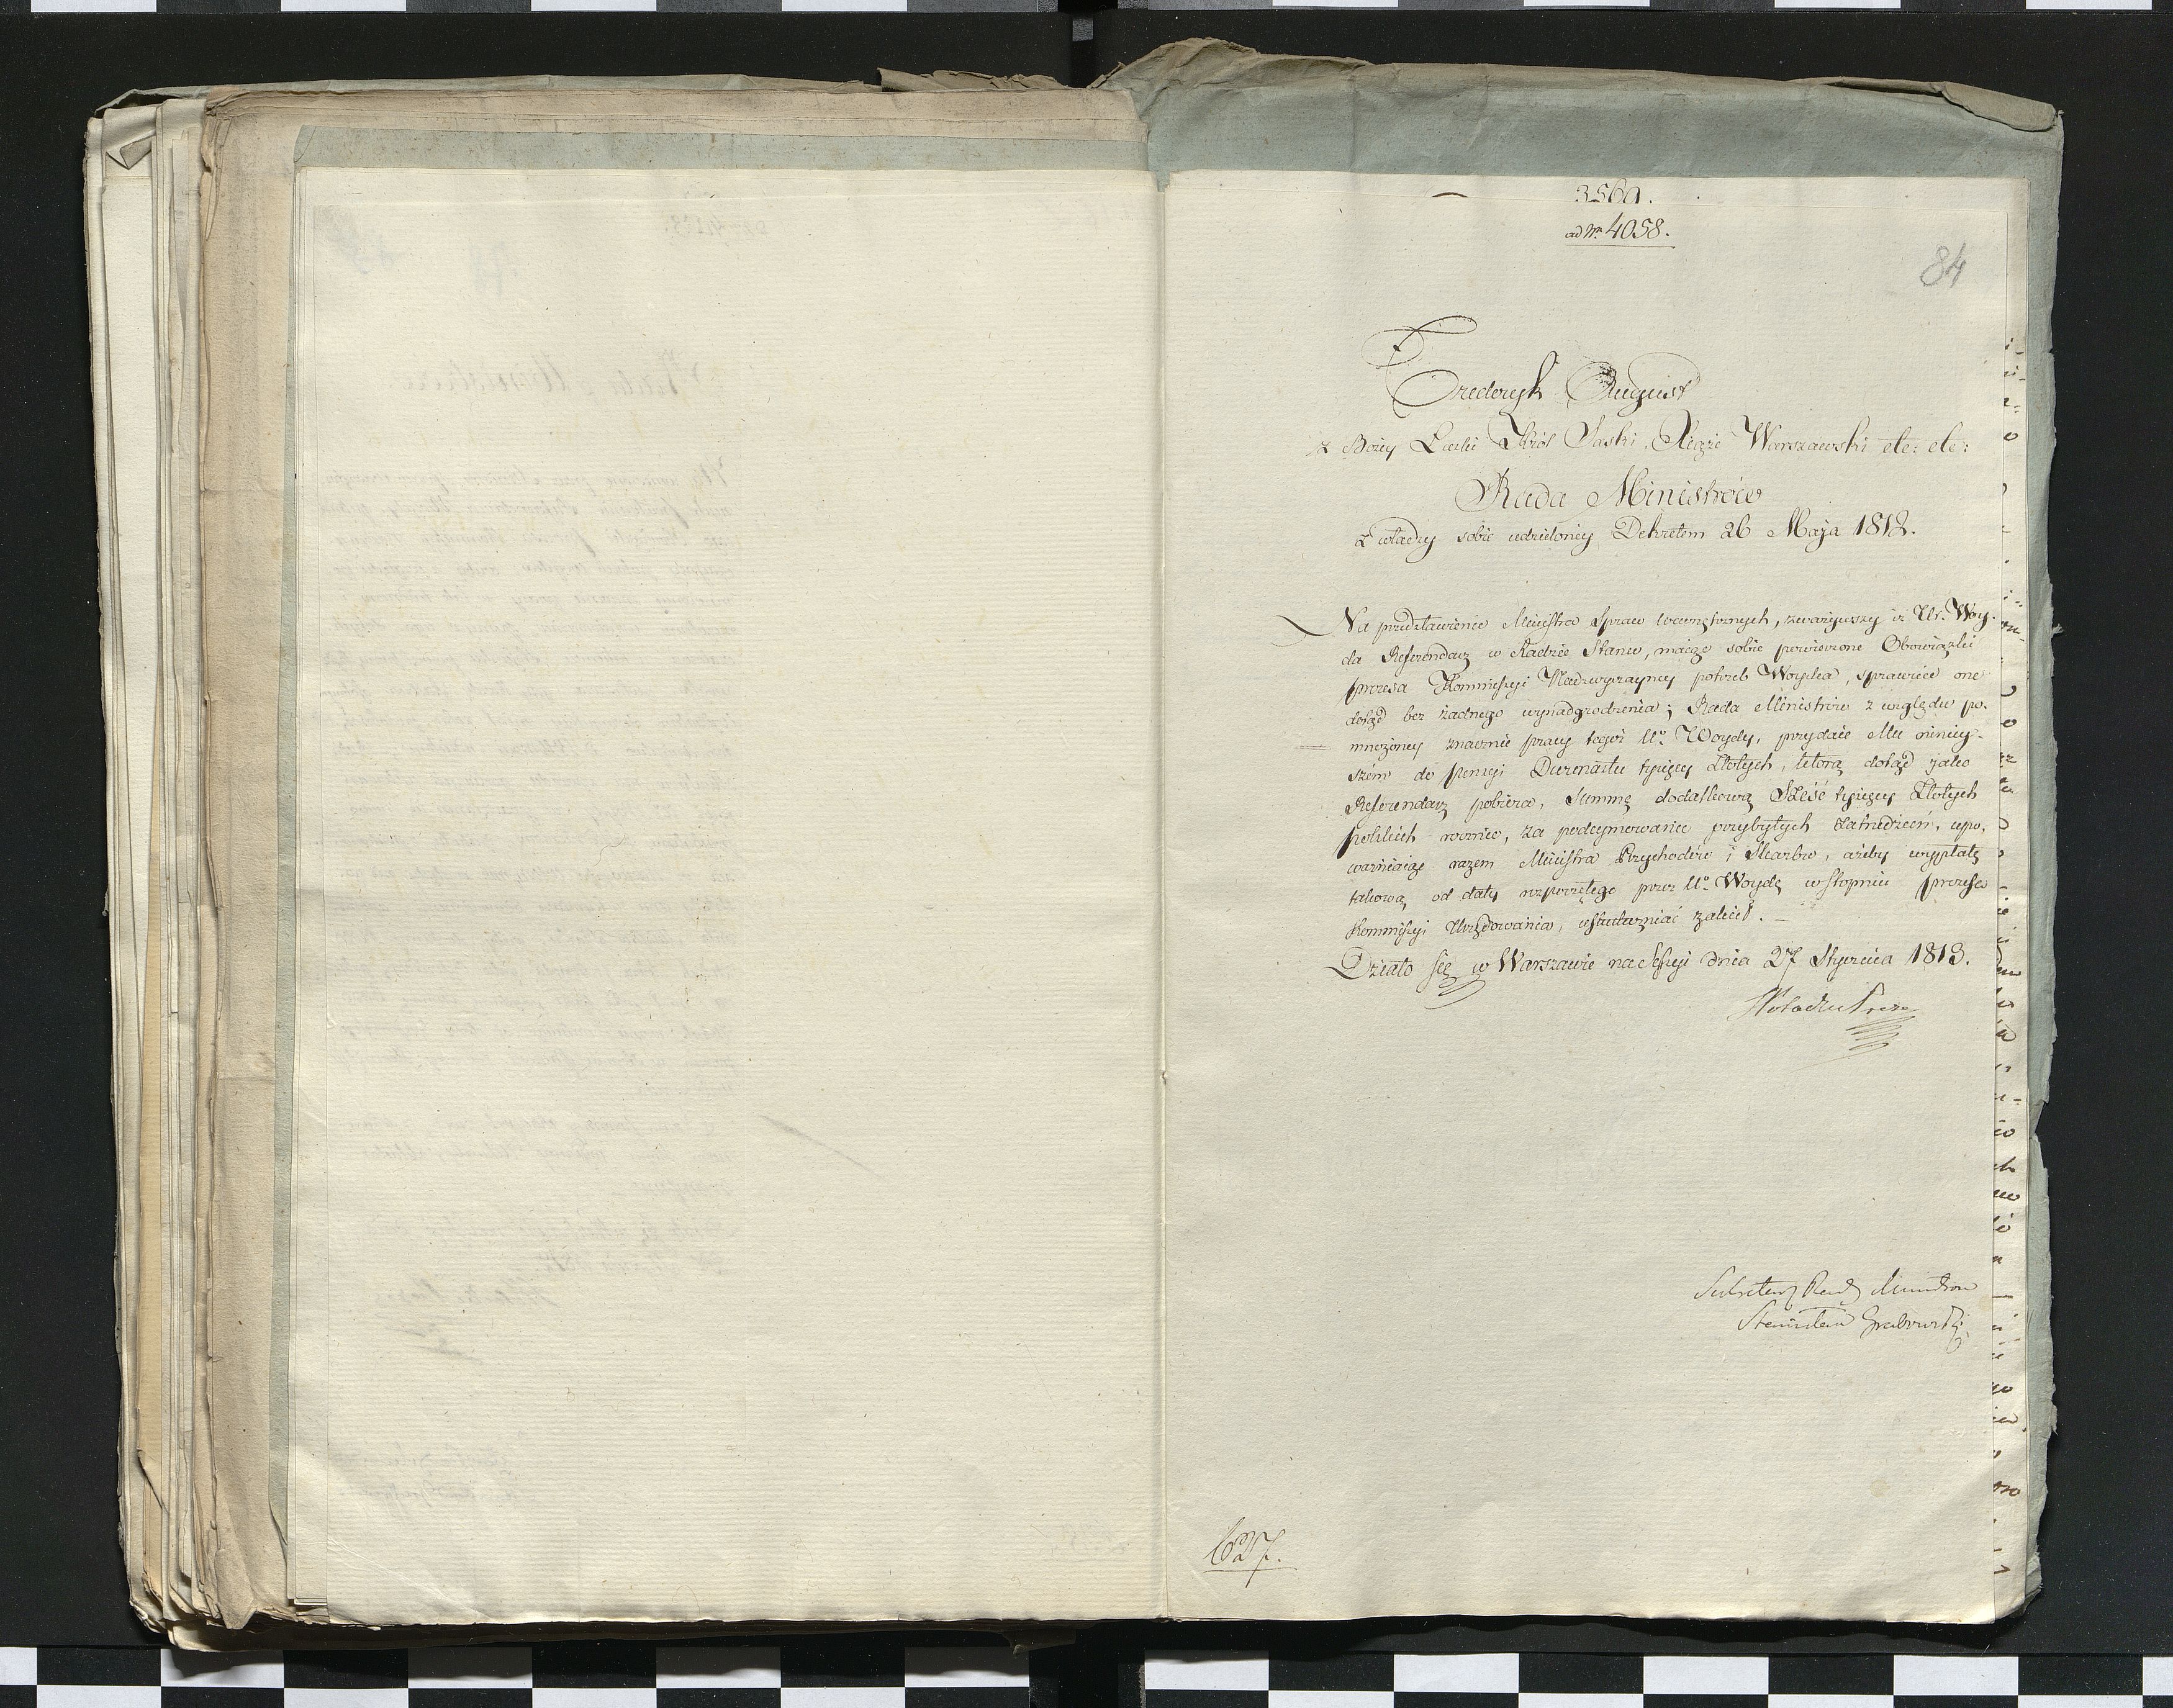 3560.
ad Nrm 4058.
84
Frederyk August
z Bożey Łaski Król Saski, Xiąże Warszawski etc: etc:
Rada Ministrów
z władzy sobie udzieloney Dekretem 26 Maja 1812.
Na przedstawienie Ministra Spraw wewnętrznych, zważywszy iż Ur. Woy-
da Referendarz w Radzie Stanu, maiąc sobie powierzone Obowiązki
prezesa Kommissyi Nadzwyczayney potrzeb Woyska, sprawuie one
dotąd bez żadnego wynadgrodzenia; Rada Ministrów z względu po-
mnożoney znacznie pracy tegoż Uo. Woydy, przydaie Mu niniey-
szém do pensyi Dwunastu tysięcy Złotych, którą dotąd jako
Referendarz pobiera, summę dodatkową Sześć tysięcy Złotych
polskich rocznie, za podeymowanie przybyłych zatrudnień, upo-
ważniaiąc razem Ministra Przychodów i Skarbu, ażeby wypłatę
takową od daty rozpoczętego przez Uo. Woydę w stopniu prezesa
Kommissyi Urzędowania, uskuteczniać zalecił. –
Działo się w Warszawie na Sessyi dnia 27 Stycznia 1813.
Sekretarz Rady Ministrów
Stanisław Grabowski
627.